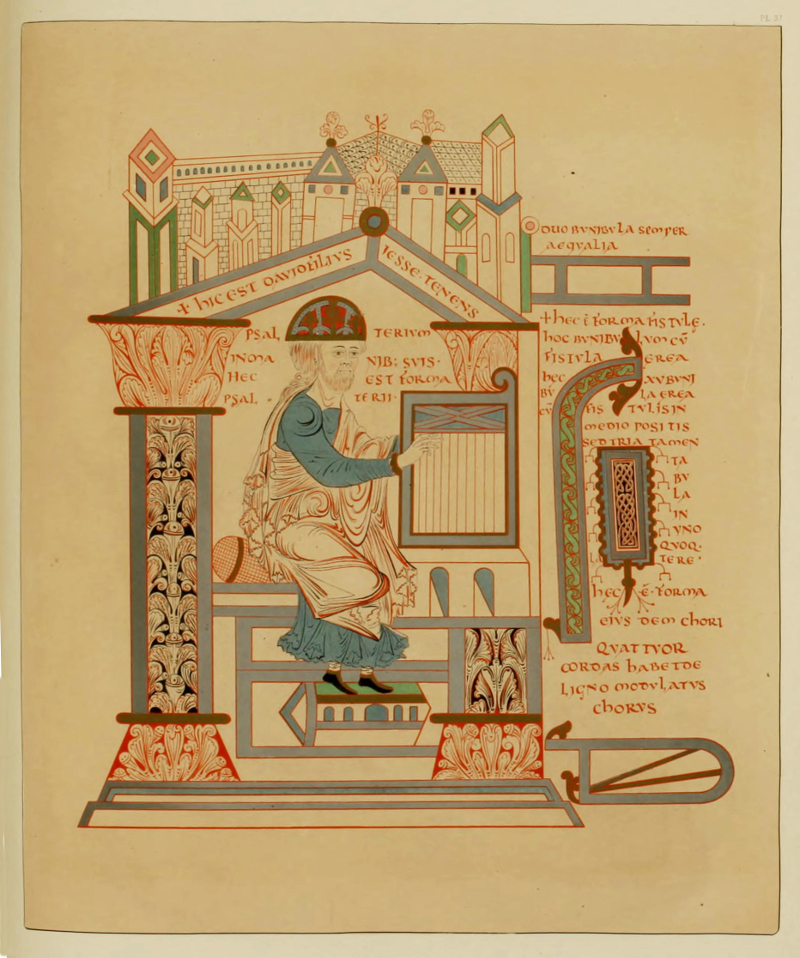 PL. 37
+ HIC EST DAVID FILIVS IESSE · TENENS
PSAL TERIVM
IN MA NIB: SVIS ·
HEC EST FORMA
PSAL TERII ·
DUO BUNIBULA SEMPER
AEQVALIA
+ HEC Ē FORMA FISTVLĘ ·
HOC BUNIBU LVM CV̄
FISTVLA EREA
HEC AXUBUNI
BU LA EREA
CV̄ FIS TVLIS IN
MEDIO POSITIS
SED IRIA TAMEN
TA
BV
LA
IN
VNO
QVOQ·
TERE ·
HEC Ē · FORMA
EIVS DEM CHORI
QVATTVOR
CORDAS HABET DE
LIGNO MODVLATVS
CHORVS